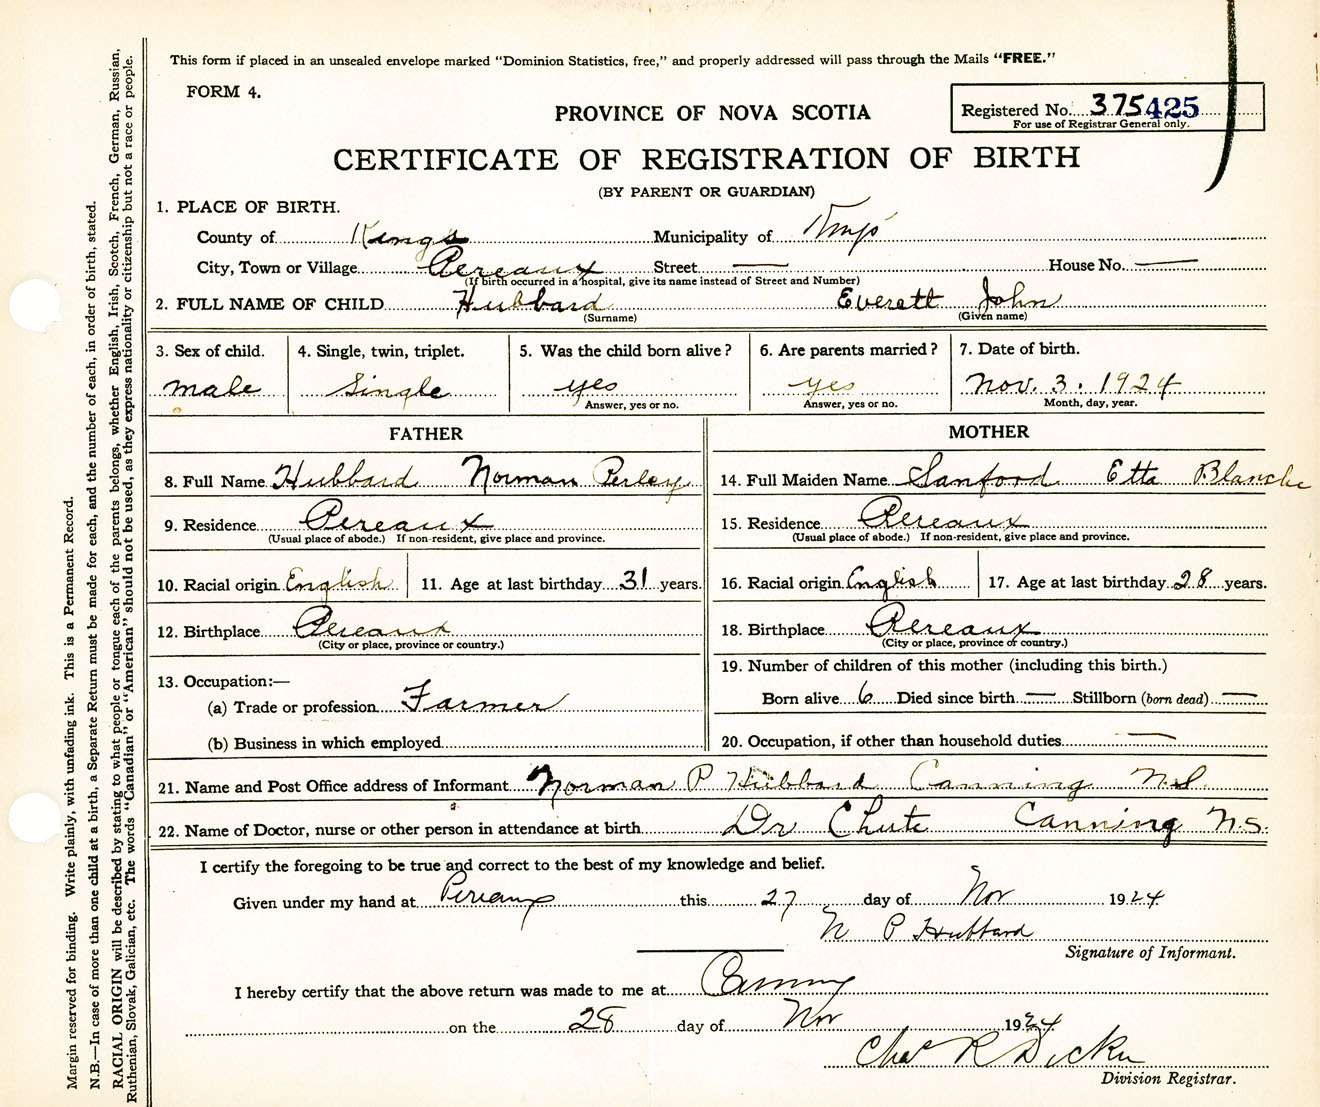 This form if placed in an unsealed envelope marked "Dominion Statistics, free," and properly addressed will pass through the Mails "FREE."
FORM 4.
PROVINCE OF NOVA SCOTIA
Registered No. 375425
For use of Registrar General only.
CERTIFICATE OF REGISTRATION OF BIRTH
(BY PARENT OR GUARDIAN)
1. PLACE OF BIRTH.
County of Kings Municipality of Kings
City, Town or Village Pereaux Street — House No. —
(If birth occurred in a hospital, give its name instead of Street and Number)
2. FULL NAME OF CHILD Hubbard Everett John
(Surname) (Given name)
3. Sex of child. 4. Single, twin, triplet. 5. Was the child born alive? 6. Are parents married? 7. Date of birth.
male Single yes yes Nov. 3. 1924
Answer, yes or no. Answer, yes or no. Month, day, year.
FATHER MOTHER
8. Full Name Hubbard Norman Perley 14. Full Maiden Name Sanford Etta Blanche
9. Residence Pereaux 15. Residence Pereaux
(Usual place of abode.) If non-resident, give place and province. (Usual place of abode.) If non-resident, give place and province.
10. Racial origin English 11. Age at last birthday 31 years. 16. Racial origin English 17. Age at last birthday 28 years.
12. Birthplace Pereaux 18. Birthplace Pereaux
(City or place, province or country.) (City or place, province or country.)
19. Number of children of this mother (including this birth.)
13. Occupation:—
Born alive 6 Died since birth — Stillborn (born dead) —
(a) Trade or profession Farmer
(b) Business in which employed 20. Occupation, if other than household duties —
21. Name and Post Office address of Informant Norman P Hubbard Canning N.S.
22. Name of Doctor, nurse or other person in attendance at birth Dr Chute Canning N.S.
I certify the foregoing to be true and correct to the best of my knowledge and belief.
Given under my hand at Pereaux this 27 day of Nov 1924
N P Hubbard
Signature of Informant.
I hereby certify that the above return was made to me at Canning
on the 28 day of Nov 1924
Chas R Dickie
Division Registrar.
Margin reserved for binding. Write plainly, with unfading ink. This is a Permanent Record.
N.B.—In case of more than one child at a birth, a Separate Return must be made for each, and the number of each, in order of birth, stated.
RACIAL ORIGIN will be described by stating to what people or tongue each of the parents belongs, whether English, Irish, Scotch, French, German, Russian,
Ruthenian, Slovak, Galician, etc. The words "Canadian" or "American" should not be used, as they express nationality or citizenship but not a race or people.